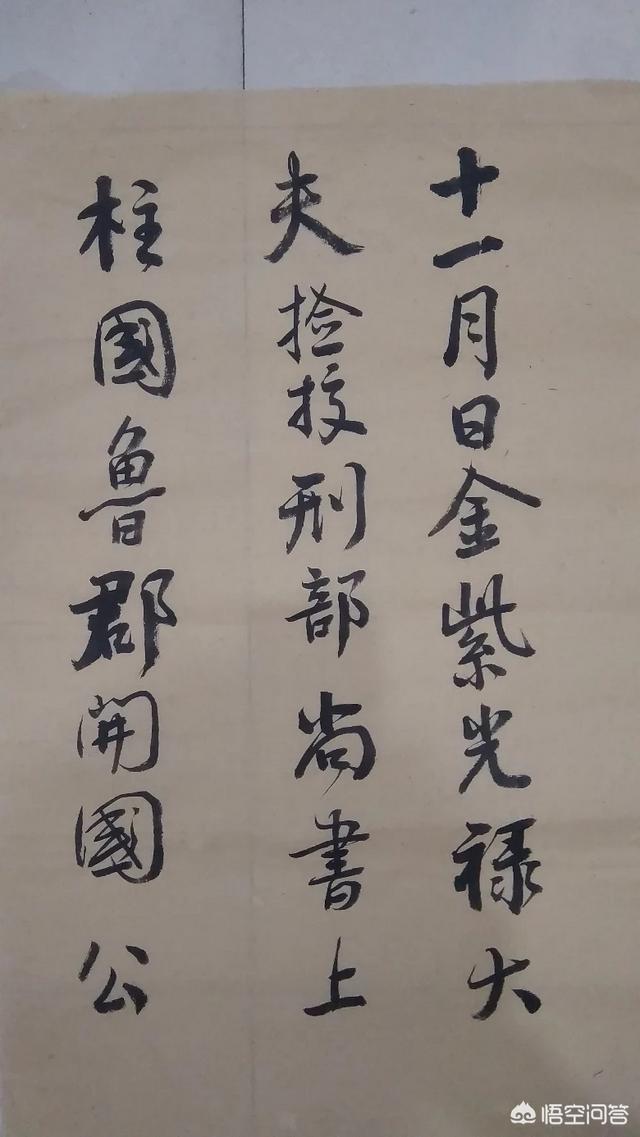 十一月日金紫光禄大
夫捡挍刑部尚書上
柱國魯郡開國公
悟空问答